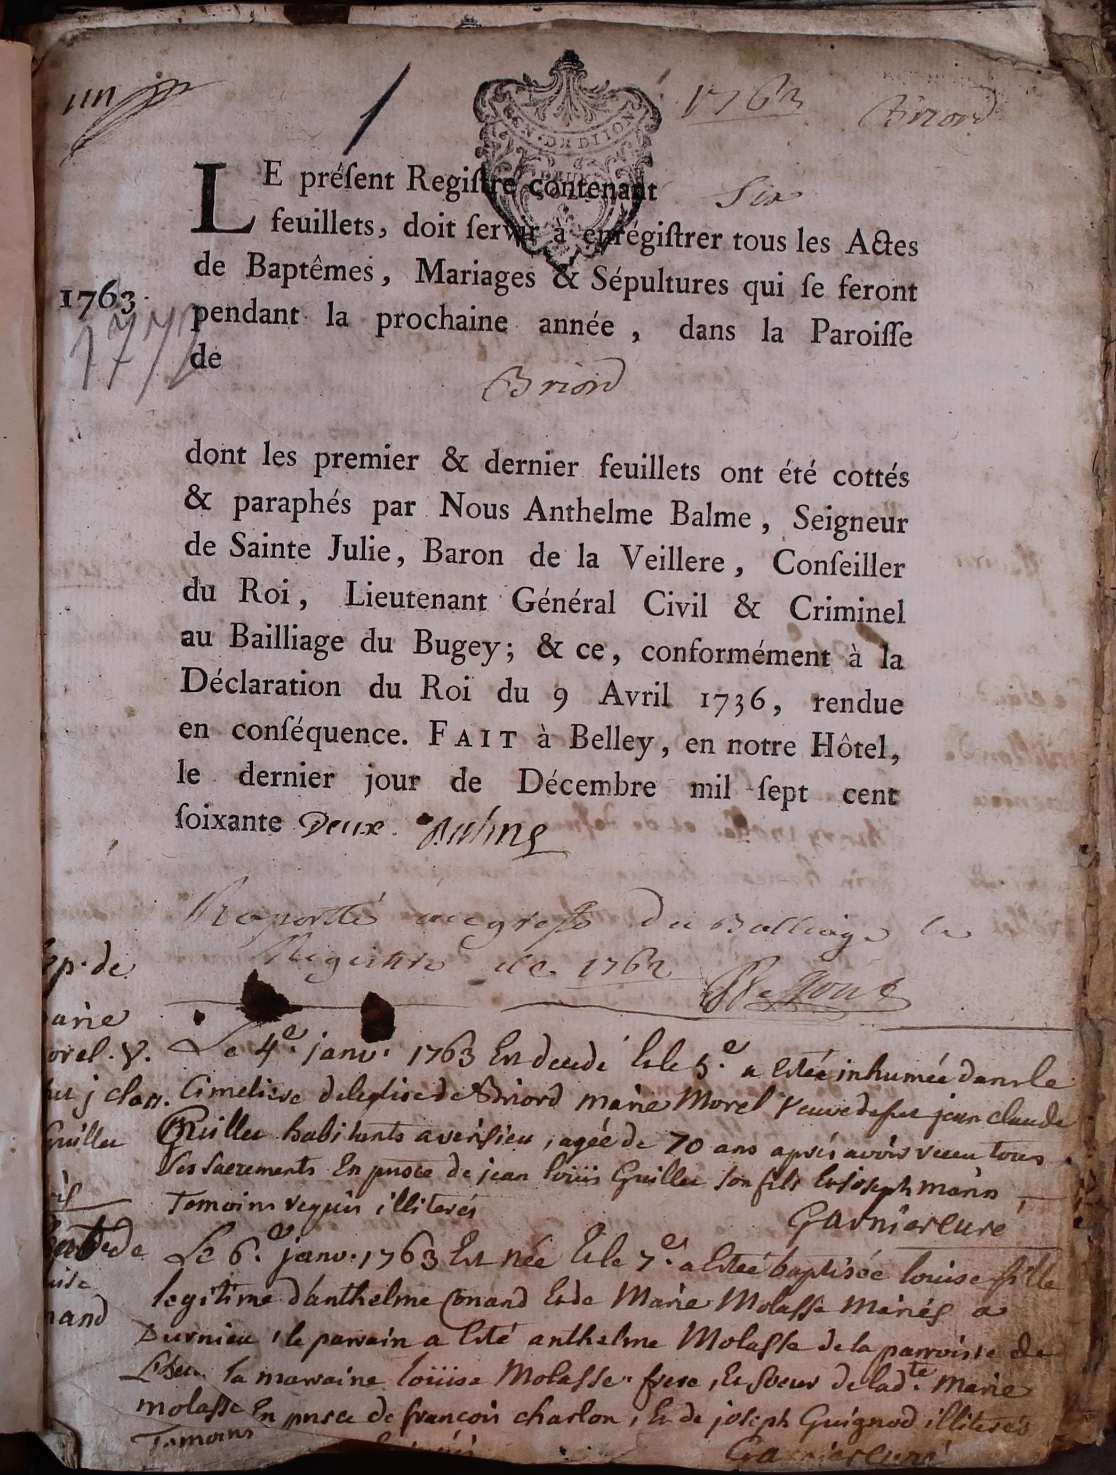 1763
Briord
GEN. DE DIJON
LE préſent Regiſtre contenant Six
feuillets, doit ſervir à enrégiſtrer tous les Actes
de Baptêmes, Mariages & Sépultures qui ſe feront
1763.
pendant la prochaine année, dans la Paroiſſe
de
Briord
dont les premier & dernier feuillets ont été cottés
& paraphés par Nous Anthelme Balme, Seigneur
de Sainte Julie, Baron de la Veillere, Conſeiller
du Roi, Lieutenant Général Civil & Criminel
au Bailliage du Bugey; & ce, conformément à la
Déclaration du Roi du 9 Avril 1736, rendue
en conſéquence. FAIT à Belley, en notre Hôtel,
le dernier jour de Décembre mil ſept cent
ſoixante Deux. Balme
Raporté au greffe du Balliage le
Registre de 1762
Le 4e. janv. 1763 Est decedé Et le 5.e a Esteé inhumée dans le
Cimetiere de leglise de Briord marie Morel veuve de feu jean claude
Guillet habitants a versieu, agée de 70 ans aprés avoir receu tous
Les sacrements En pnsce de jean loüis Guillet son fils Et joseph marin
Temoins requis illiterés
Garnier curé
Le 6.e janv. 1763 Est née Et le 7.e a Estée baptisée louise fille
legitime d'anthelme Conand Et de Marie Molasse Mariés a
Durnieu, le parrain a Esté anthelme Molasse de la parroisse de
la marraine loüise Molasse frere, Et sœur de ladte. marie
molasse En pnsce de françois charlon, Et de joseph Guignod illiterés
Temoins requis
Garnier curé